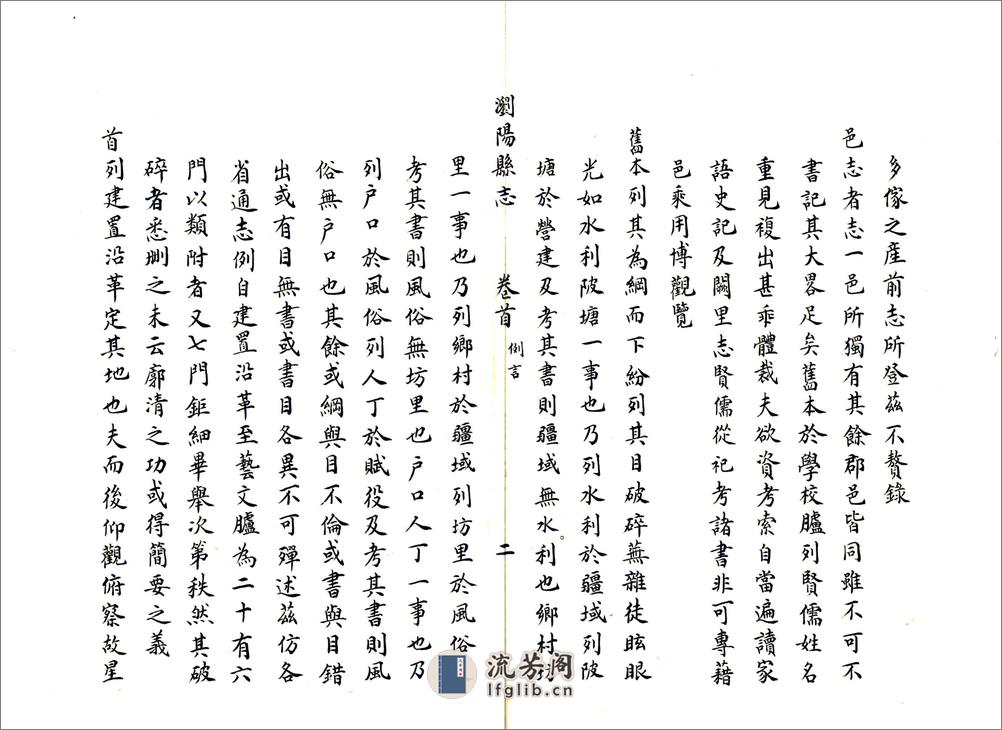 多傢之產前志所登茲不贅錄
邑志者志一邑所獨有其餘郡邑皆同雖不可不
書記其大畧足矣舊本於學校臚列賢儒姓名
重見複出甚乖體裁夫欲資考索自當遍讀家
語史記及闕里志賢儒從祀考諸書非可專藉
邑乘用博觀覽
舊本列其為綱而下紛列其目破碎蕪雜徒眩眼
光如水利陂塘一事也乃列水利於疆域列陂
塘於營建及考其書則疆域無水利也鄉村坊
瀏陽縣志 卷首 例言 二
里一事也乃列鄉村於疆域列坊里於風俗
考其書則風俗無坊里也戶口人丁一事也乃
列戶口於風俗列人丁於賦役及考其書則風
俗無戶口也其餘或綱與目不倫或書與目錯
出或有目無書或書目各異不可殫述茲仿各
省通志例自建置沿革至藝文臚為二十有六
門以類附者又七門鉅細畢舉次第秩然其破
碎者悉刪之未云廓清之功或得簡要之義
首列建置沿革定其地也夫而後仰觀俯察故星
流芳阁
lfglib.cn